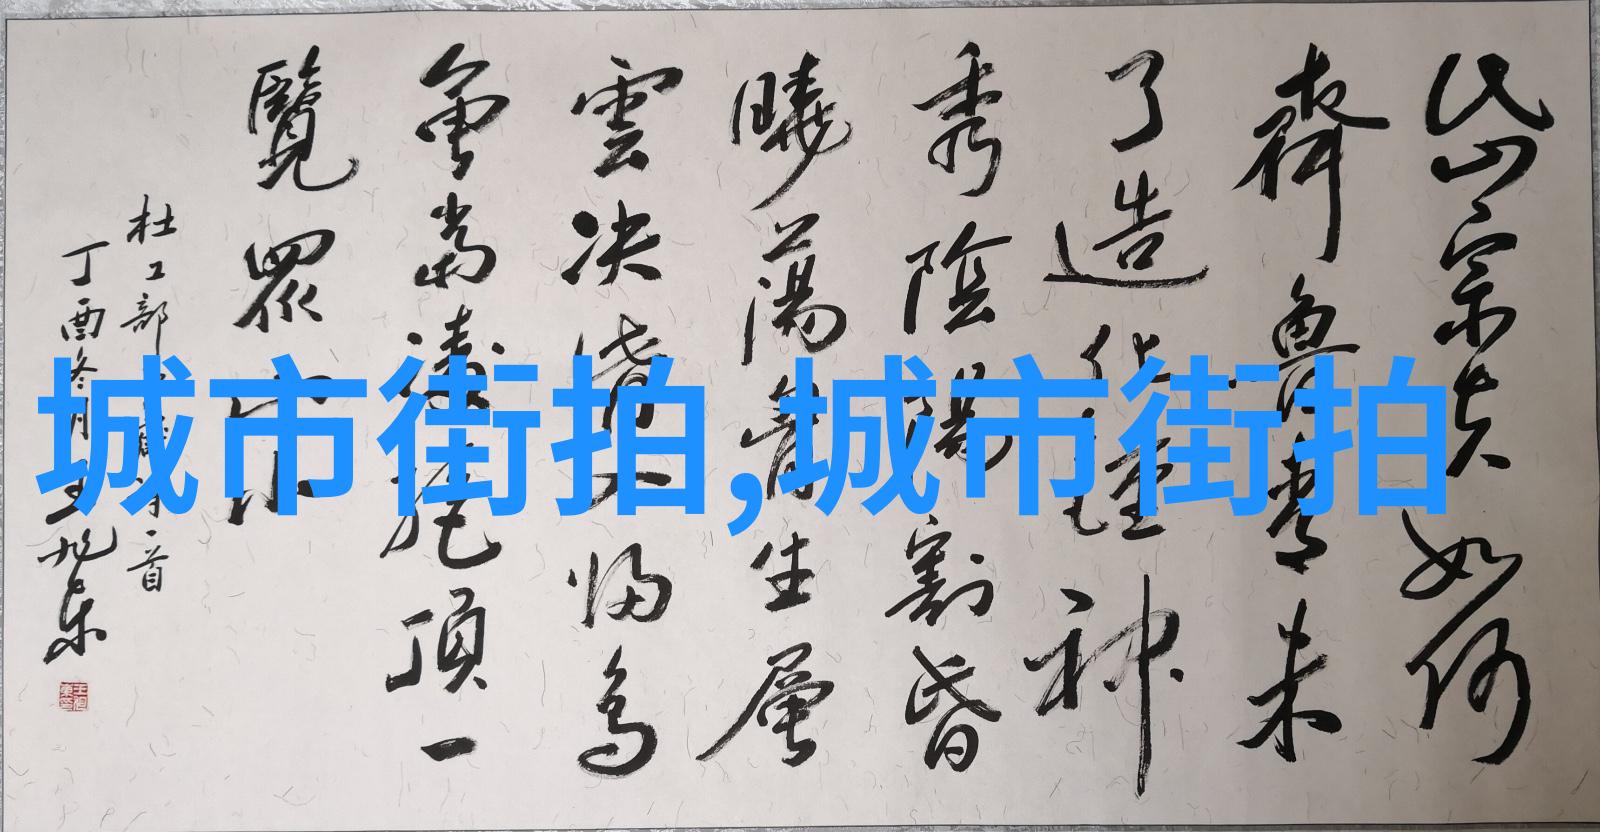 岱宗夫如何
齊魯青未
了造化鍾神
秀陰陽割昏
曉蕩胸生層
雲決眥入歸鳥
會當凌絕頂一
覽眾山小
杜工部望嶽詩一首
丁酉冬月王旭東
城市街拍,城市街拍